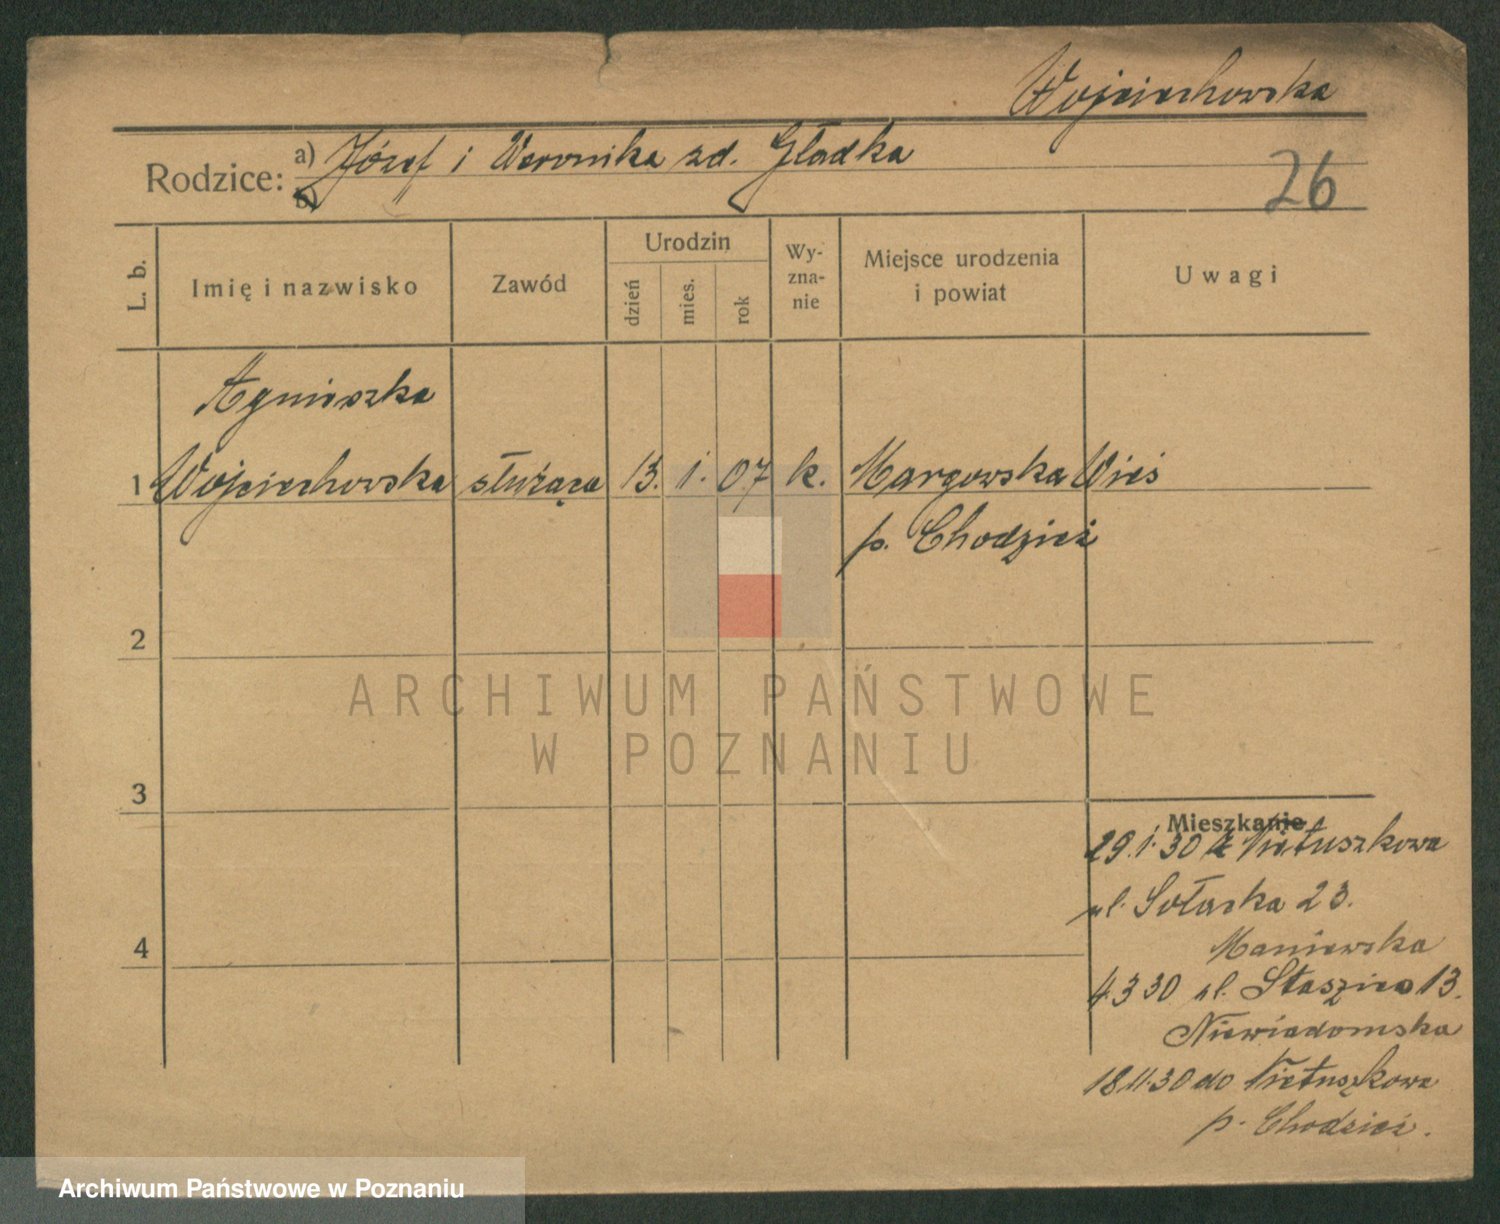 Wojciechowska
Rodzice: a) Józef i Weronika zd. Gładka
b)
26
L. b.
Imię i nazwisko
Zawód
Urodzin
dzień
mies.
rok
Wy-
zna-
nie
Miejsce urodzenia
i powiat
Uwagi
Agnieszka
1 Wojciechowska służąca 13. 1. 07 k. Margowska Wieś
p. Chodzież
2
ARCHIWUM PAŃSTWOWE
W POZNANIU
3
Mieszkanie
29.1.30 z Pietuszkowa
ul. Sołacka 23.
Maniewska
4 3 30 ul. Staszica 13.
4
Niewiadomska
18.11.30 do Pietuszkowa
p. Chodzież.
Archiwum Państwowe w Poznaniu